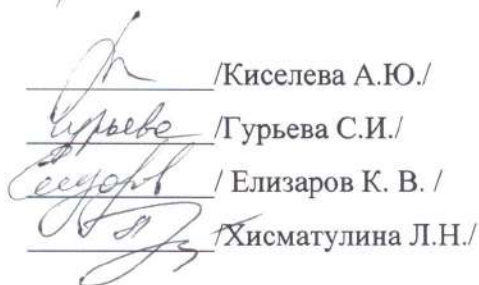 /Киселева А.Ю./
Гурьева /Гурьева С.И./
/ Елизаров К. В. /
/Хисматулина Л.Н./